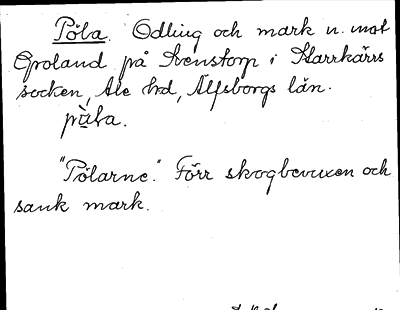 Pöla. Odling och mark n. mot
Groland på Svenstorp i Starrkärrs
socken, Ale hd, Älfsborgs län.
pö̀la.
"Pölarne." Förr skogbevuxen och
sank mark.